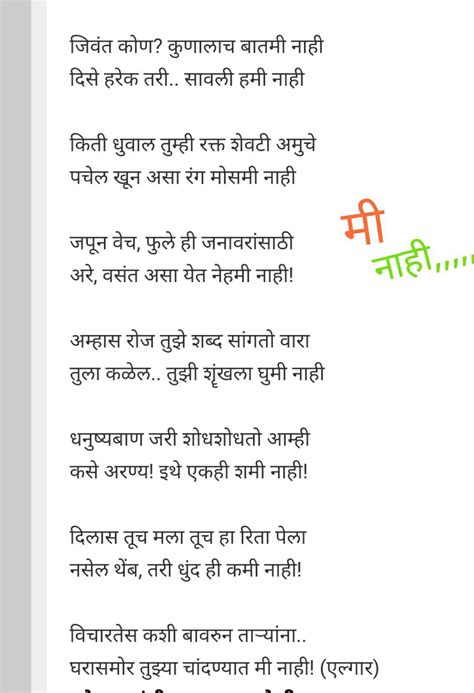 जिवंत कोण? कुणालाच बातमी नाही
दिसे हरेक तरी.. सावली हमी नाही
किती धुवाल तुम्ही रक्त शेवटी अमुचे
पचेल खून असा रंग मोसमी नाही
मी
नाही,,,,,
जपून वेच, फुले ही जनावरांसाठी
अरे, वसंत असा येत नेहमी नाही!
अम्हास रोज तुझे शब्द सांगतो वारा
तुला कळेल.. तुझी शृंखला घुमी नाही
धनुष्यबाण जरी शोधशोधतो आम्ही
कसे अरण्य! इथे एकही शमी नाही!
दिलास तूच मला तूच हा रिता पेला
नसेल थेंब, तरी धुंद ही कमी नाही!
विचारतेस कशी बावरुन ताऱ्यांना..
घरासमोर तुझ्या चांदण्यात मी नाही! (एल्गार)